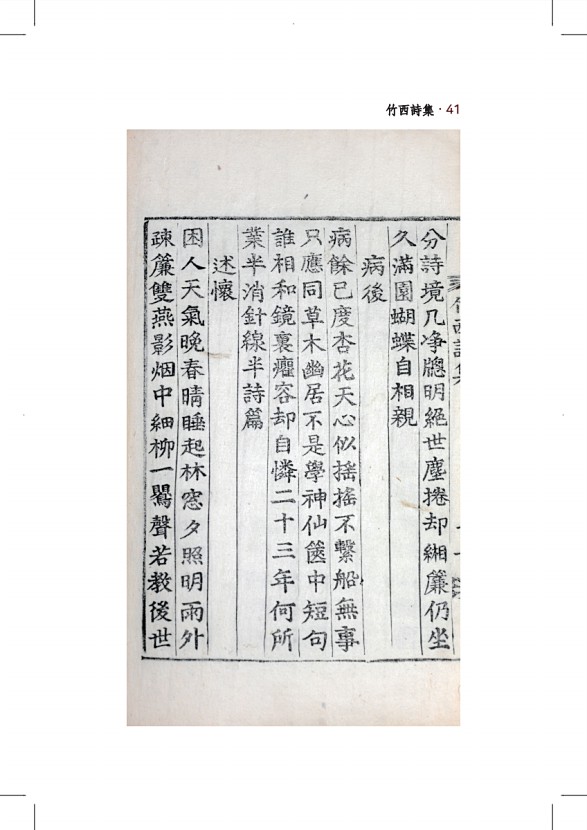 竹西詩集 · 41
分詩境几净牎明絕世塵捲却緗簾仍坐
久滿園蝴蝶自相親
病後
病餘已度杏花天心似搖搖不繫船無事
只應同草木幽居不是學神仙篋中短句
誰相和鏡裏癯容却自憐二十三年何所
業半消針線半詩篇
述懷
困人天氣晩春晴睡起林窓夕照明雨外
疎簾雙燕影烟中細柳一鸎聲若教後世